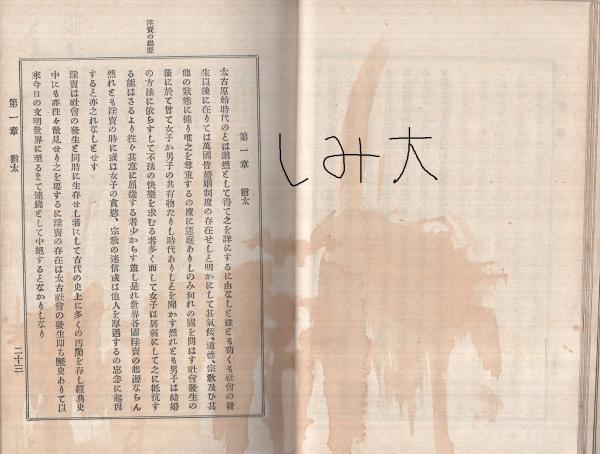 しみ大
淫賣の起源
第一章　猶太
太古原始時代のとは邈然として得て之を詳にするに由なしと雖とも苟くも社會の發
生以後に在りては萬國皆婚姻制度の存在せしと明かにして其氣候、道德、宗敎及ひ其
他の狀態に據り唯之を尊重するの度に逕庭ありしのみ何れの國を問はす社會發生の
後に於て曾て女子か男子の共有物たりし時代ありしとを聞かす然れとも男子は結婚
の方法に依らすして不法の快樂を求むる者多く而して女子は羸弱にして之に抵抗す
る能はさるより往々其意に屈從する者少からす蓋し是れ世界各國淫賣の起源ならん
然れとも淫賣の時に或は女子の貪慾、宗敎の迷信或は他人を厚遇するの意念に起因
すると亦之れなしとせす
淫賣は社會の發生と同時に生存せし者にして古代の史上に多くの汚點を存し經典史
中にも亦往々散見せり之を要するに淫賣の存在は太古社會の發生卽ち歷史ありて以
來今日の文明世界に至るまて連綿として中絕するとなかりしなり
第一章　猶太
二十三